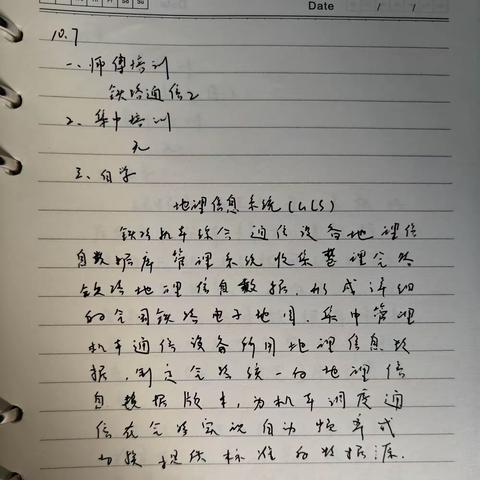 Date / /
10.7
一、师傅培训
铁路通信2
2、集中培训
无
三、自学
地理信息系统(GIS)
铁路机车综合通信设备地理信
息数据库管理系统收集整理全路
铁路地理信息数据,形成详细
的全国铁路电子地图,集中管理
机车通信设备所用地理信息数
据,制定全路统一的地理信
息数据版本,为机车调度通
信在全路实现自动频率或
切换提供标准的数据源.